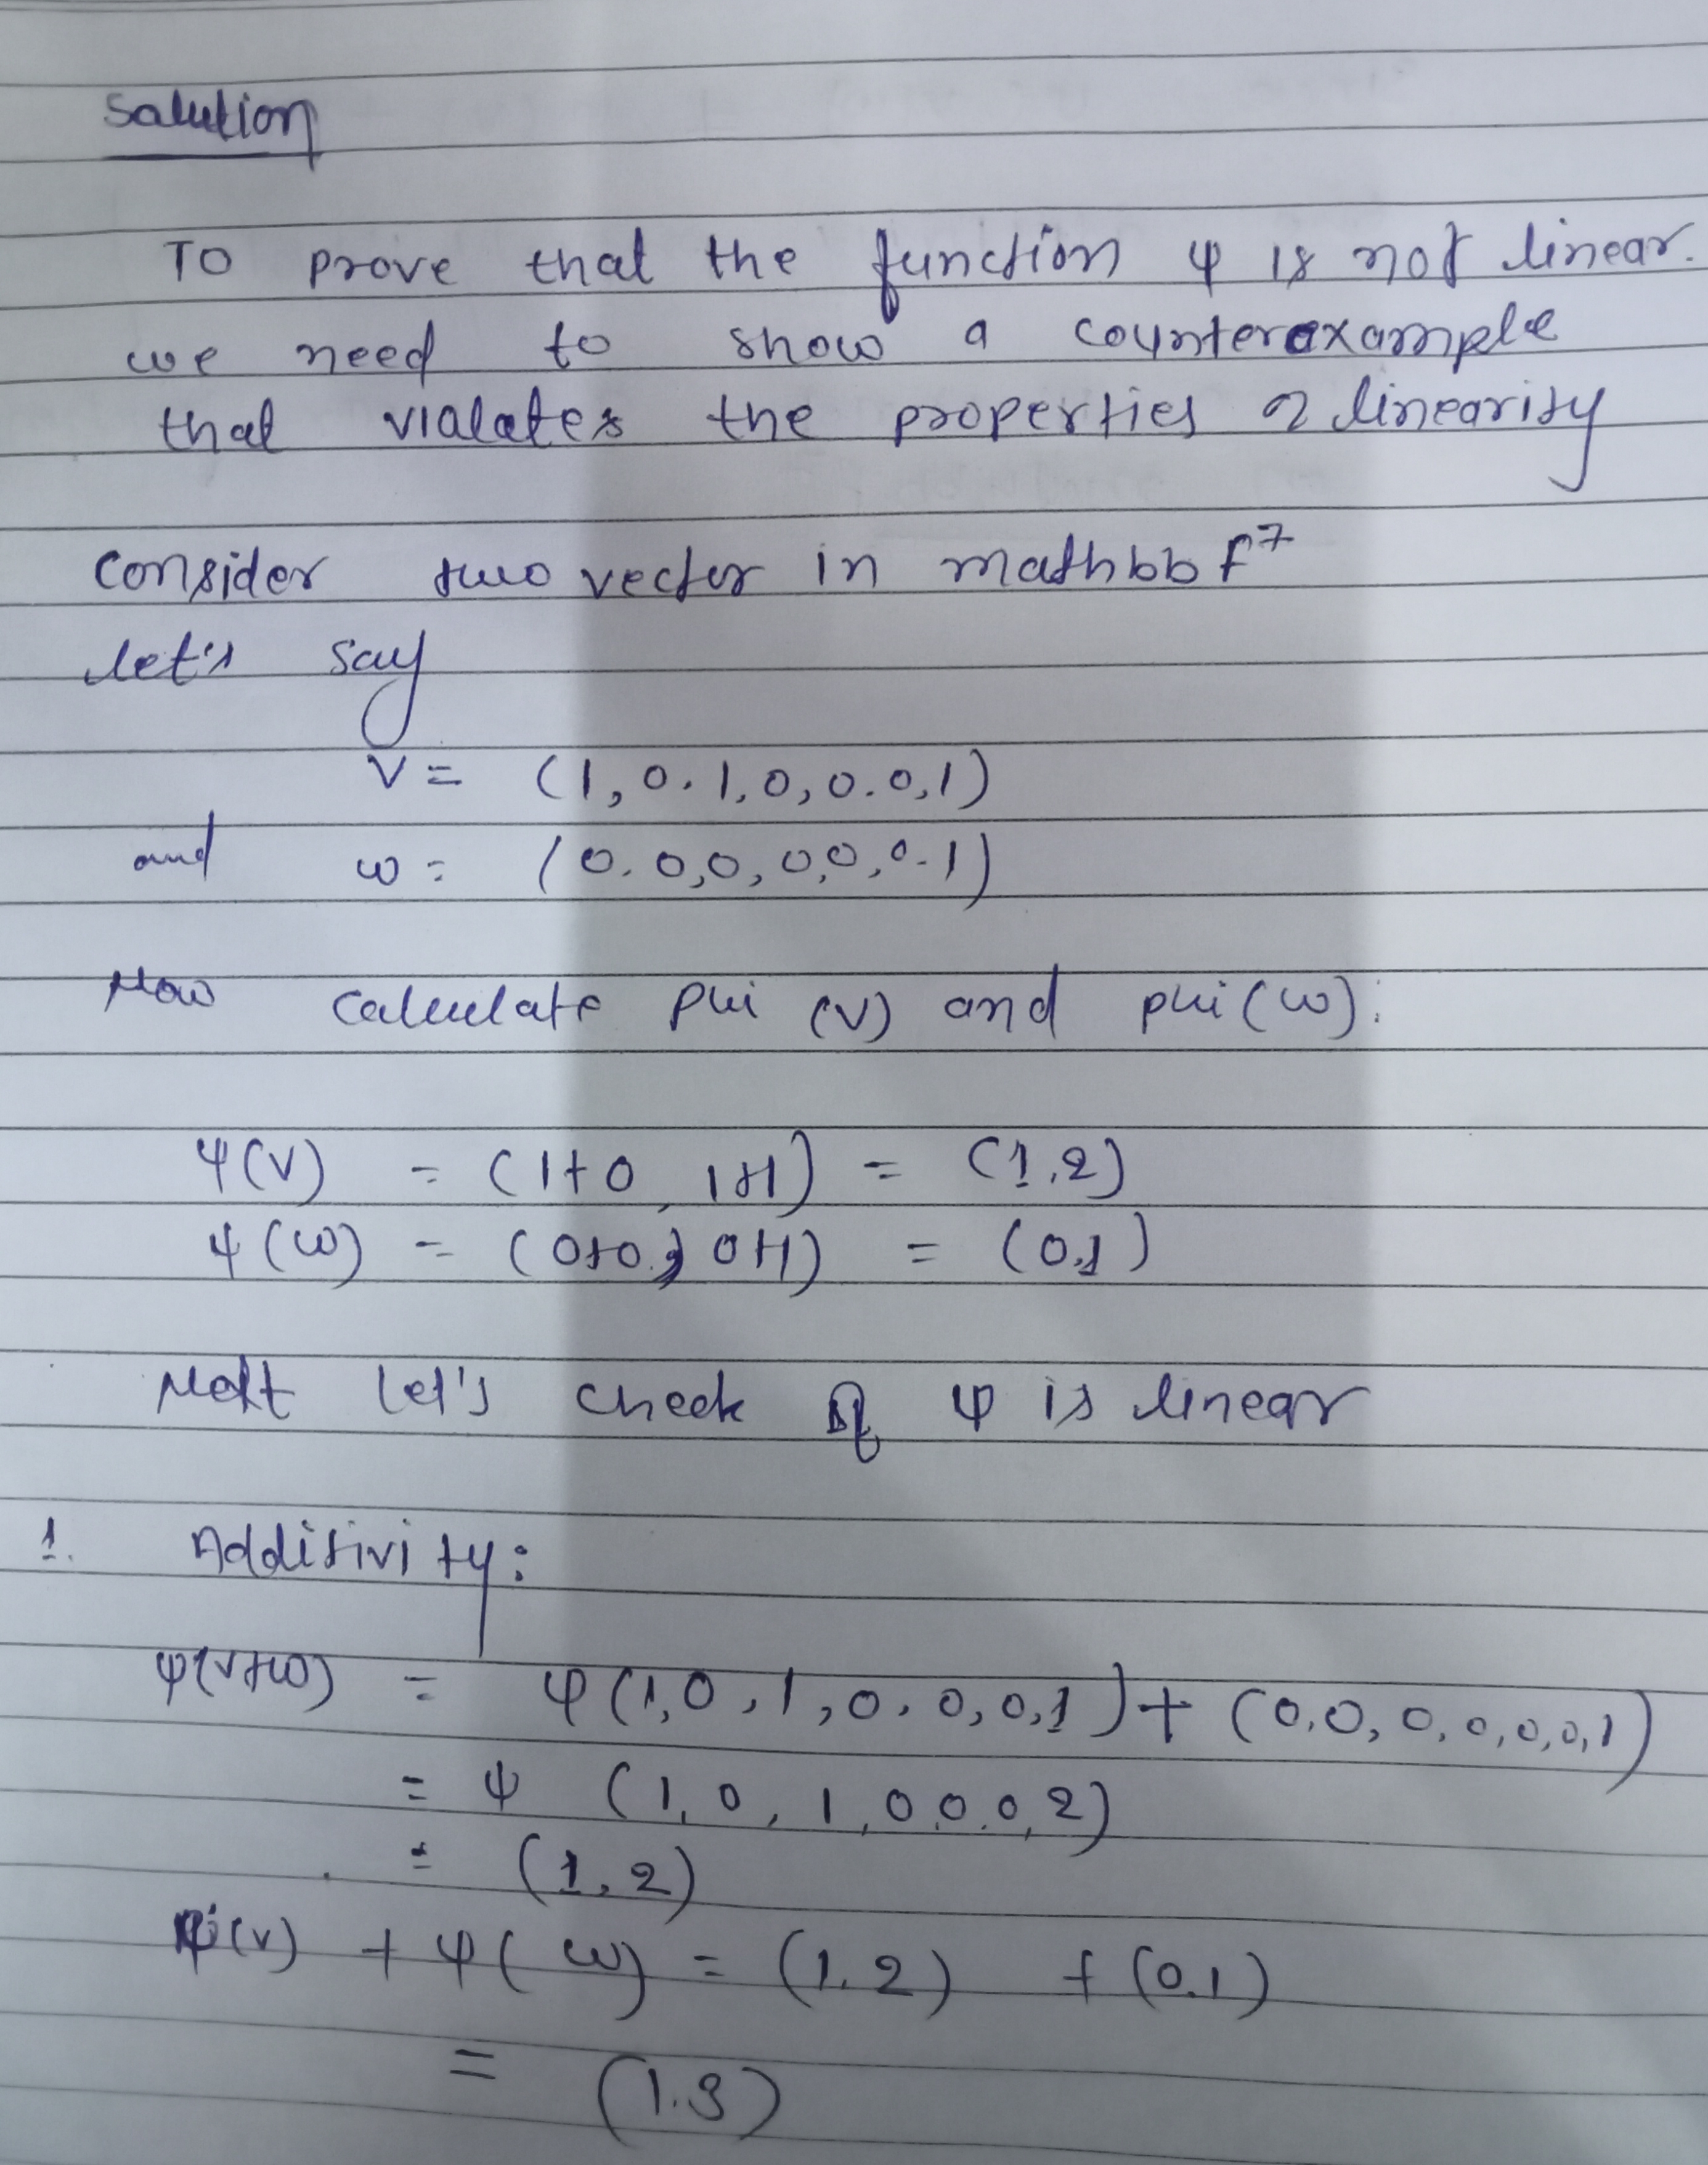 Solution
To prove that the function ψ is not linear.
we need to show a counterexample
that vialates the properties of linearity
Consider two vector in mathbb F⁷
let's say
V = (1,0.1,0,0.0,1)
and w = (0.0,0,0,0,0.1)
Now calculate phi (v) and phi (w):
ψ(v) = (1+0, 1+1) = (1,2)
ψ(w) = (0+0, 0+1) = (0,1)
Next let's check if ψ is linear
1. Additivity:
ψ(v+w) = ψ(1,0,1,0,0,0,1) + (0,0,0,0,0,0,1)
= ψ (1,0,1,0,0,0,2)
= (1,2)
(v) + ψ(w) = (1.2) + (0.1)
= (1.3)